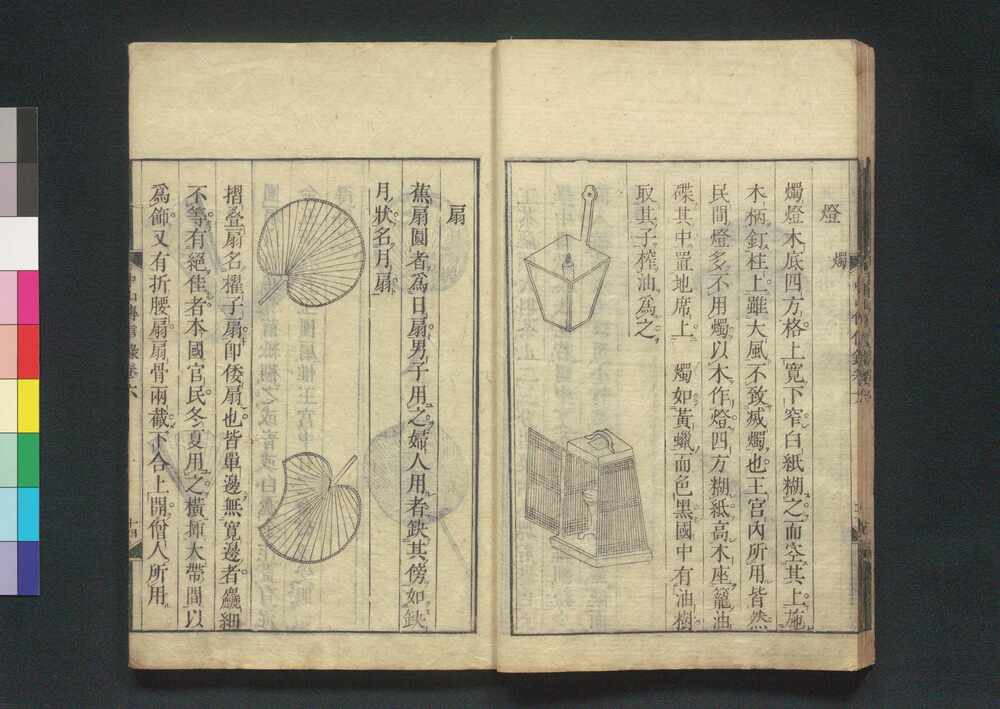 燈
燭
燭燈木底四方格上寬下窄白紙糊之而空其上施
木柄釘柱上雖大風不致滅燭也王宮內所用皆然
民間燈多不用燭以木作燈四方糊紙高木座籠油
碟其中置地席上 燭如黃蠟而色黑國中有油樹
取其子榨油爲之
扇
蕉扇圓者爲日扇男子用之婦人用者缺其傍如缺
月狀名月扇
摺疊扇名擢子扇卽倭扇也皆單邊無寬邊者麤細
不等有絕佳者本國官民冬夏用之橫揷大帶間以
爲飾又有折腰扇扇骨兩截下合上開僧人所用